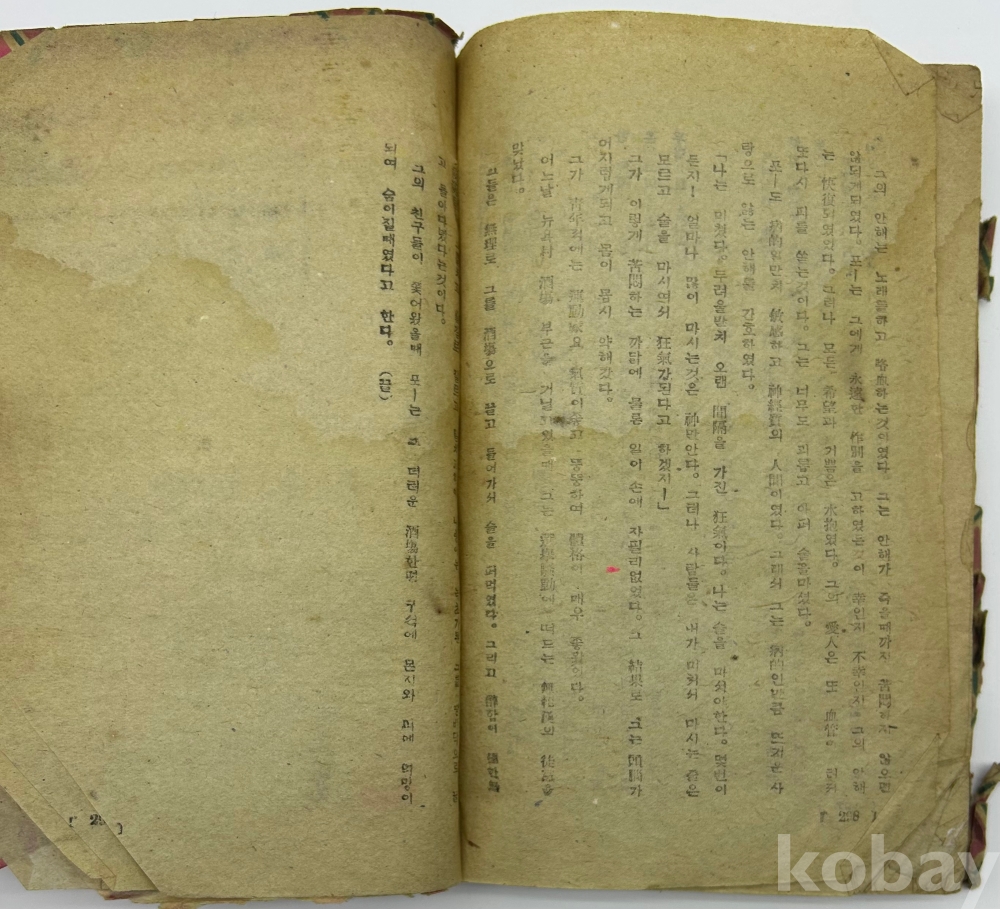 그의 안해는 노래를하고 咯血하는것이였다 그는 안해가 죽을때까지 苦悶하지 않으면
않되게되였다. 포ㅡ는 그에게 永遠한 作別을 고하였든것이 幸인지 不幸인지 그의 안해
는 恢復되였었다. 그러나 모든 希望과 기쁨은 水泡였다. 그의 愛人은 또 血管이 터져
또다시 피를 쏟는것이다. 그는 너무도 괴롭고 아퍼 술을마셨다.
포ㅡ도 病的일만치 敏感하고 神經質의 人間이였다. 그래서 그는 뜨거운사
랑으로 않는 안해를 간호하였다.
「나는 미쳤다. 두려울만치 오랜 間隔을 가진 狂氣이다. 나는 술을 마셔야한다. 몇번이
든지! 얼마나 많이 마시는것은 神만안다. 그러나 사람들은 내가 미쳐서 마시는 줄은
모르고 술을 마시여서 狂氣가된다고 하겠지ㅡ」
그가 이렇게 苦悶하는 까닭에 물론 일이 손에 자필리없었다. 그 結果로 그는 頭腦가
어지럽게되고 몸이 몹시 약해갔다.
그가 靑年적에는 運動家요 좋고 똥똥하여 體格이 매우 좋왔었다.
어느날 뉴욕村 酒場 부근을 거닐고있을때 그는 選擧運動에 떠드는 無賴漢의 徒黨을
맞났다.
그들은 無理로 그를 酒場으로 끌고 들어가서 술을 퍼먹였다. 그리고
고 돌아다녔다는것이다.
그의 친구들이 쫓어왔을때 포ㅡ는 그 더러운 酒場한편 구석에 몬지와 피에 엉망이
되여 숨이질때였다고 한다. (끝)
[ 298 ]
kobay